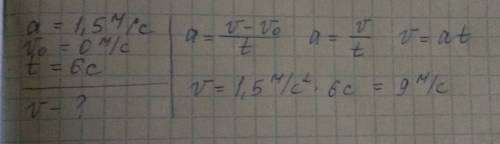 a = 1,5 м/с
v₀ = 0 м/с
t = 6с
v - ?
a = (v - v₀)/t   a = v/t   v = at
v = 1,5 м/с² · 6с = 9 м/с